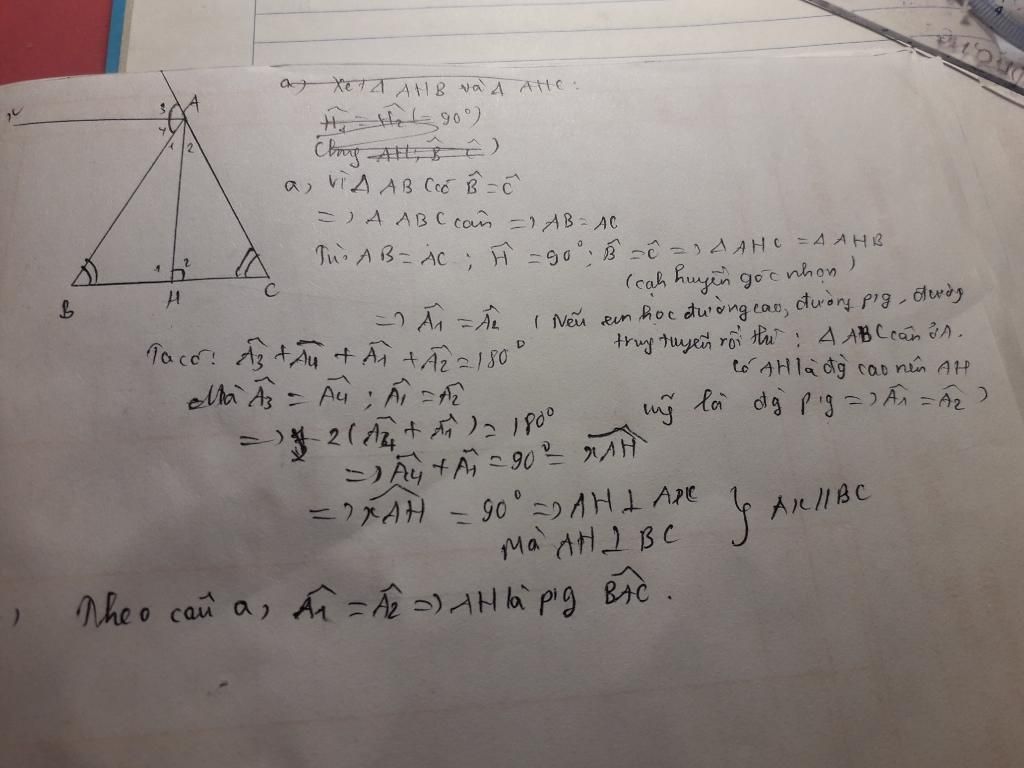 x
3
A
4
1 2
1 2
B
H
C
a) Xét Δ AHB và Δ AHC:
Ĥ1 = Ĥ2 (= 90°)
Chung AH; B̂ Ĉ )
a, Vì Δ ABC có B̂ = Ĉ
=> Δ ABC cân => AB = AC
Từ: AB = AC ; Ĥ = 90° ; B̂ = Ĉ => Δ AHC = Δ AHB
(cạh huyền góc nhọn)
=> Â1 = Â2 ( Nếu em học đường cao, đường p/g, đường
trug tuyến rồi thì: Δ ABC cân ở A.
Có AH là đg cao nên AH
cũg là đg p/g => Â1 = Â2 )
Ta có: Â3 + Â4 + Â1 + Â2 = 180°
Mà Â3 = Â4 ; Â1 = Â2
=> 2 (Â4 + Â1) = 180°
=> Â4 + Â1 = 90° = xAH
=> xAH = 90° => AH ⊥ Ax
Mà AH ⊥ BC
} Ax // BC
) Theo câu a, Â1 = Â2 => AH là p/g BAC.